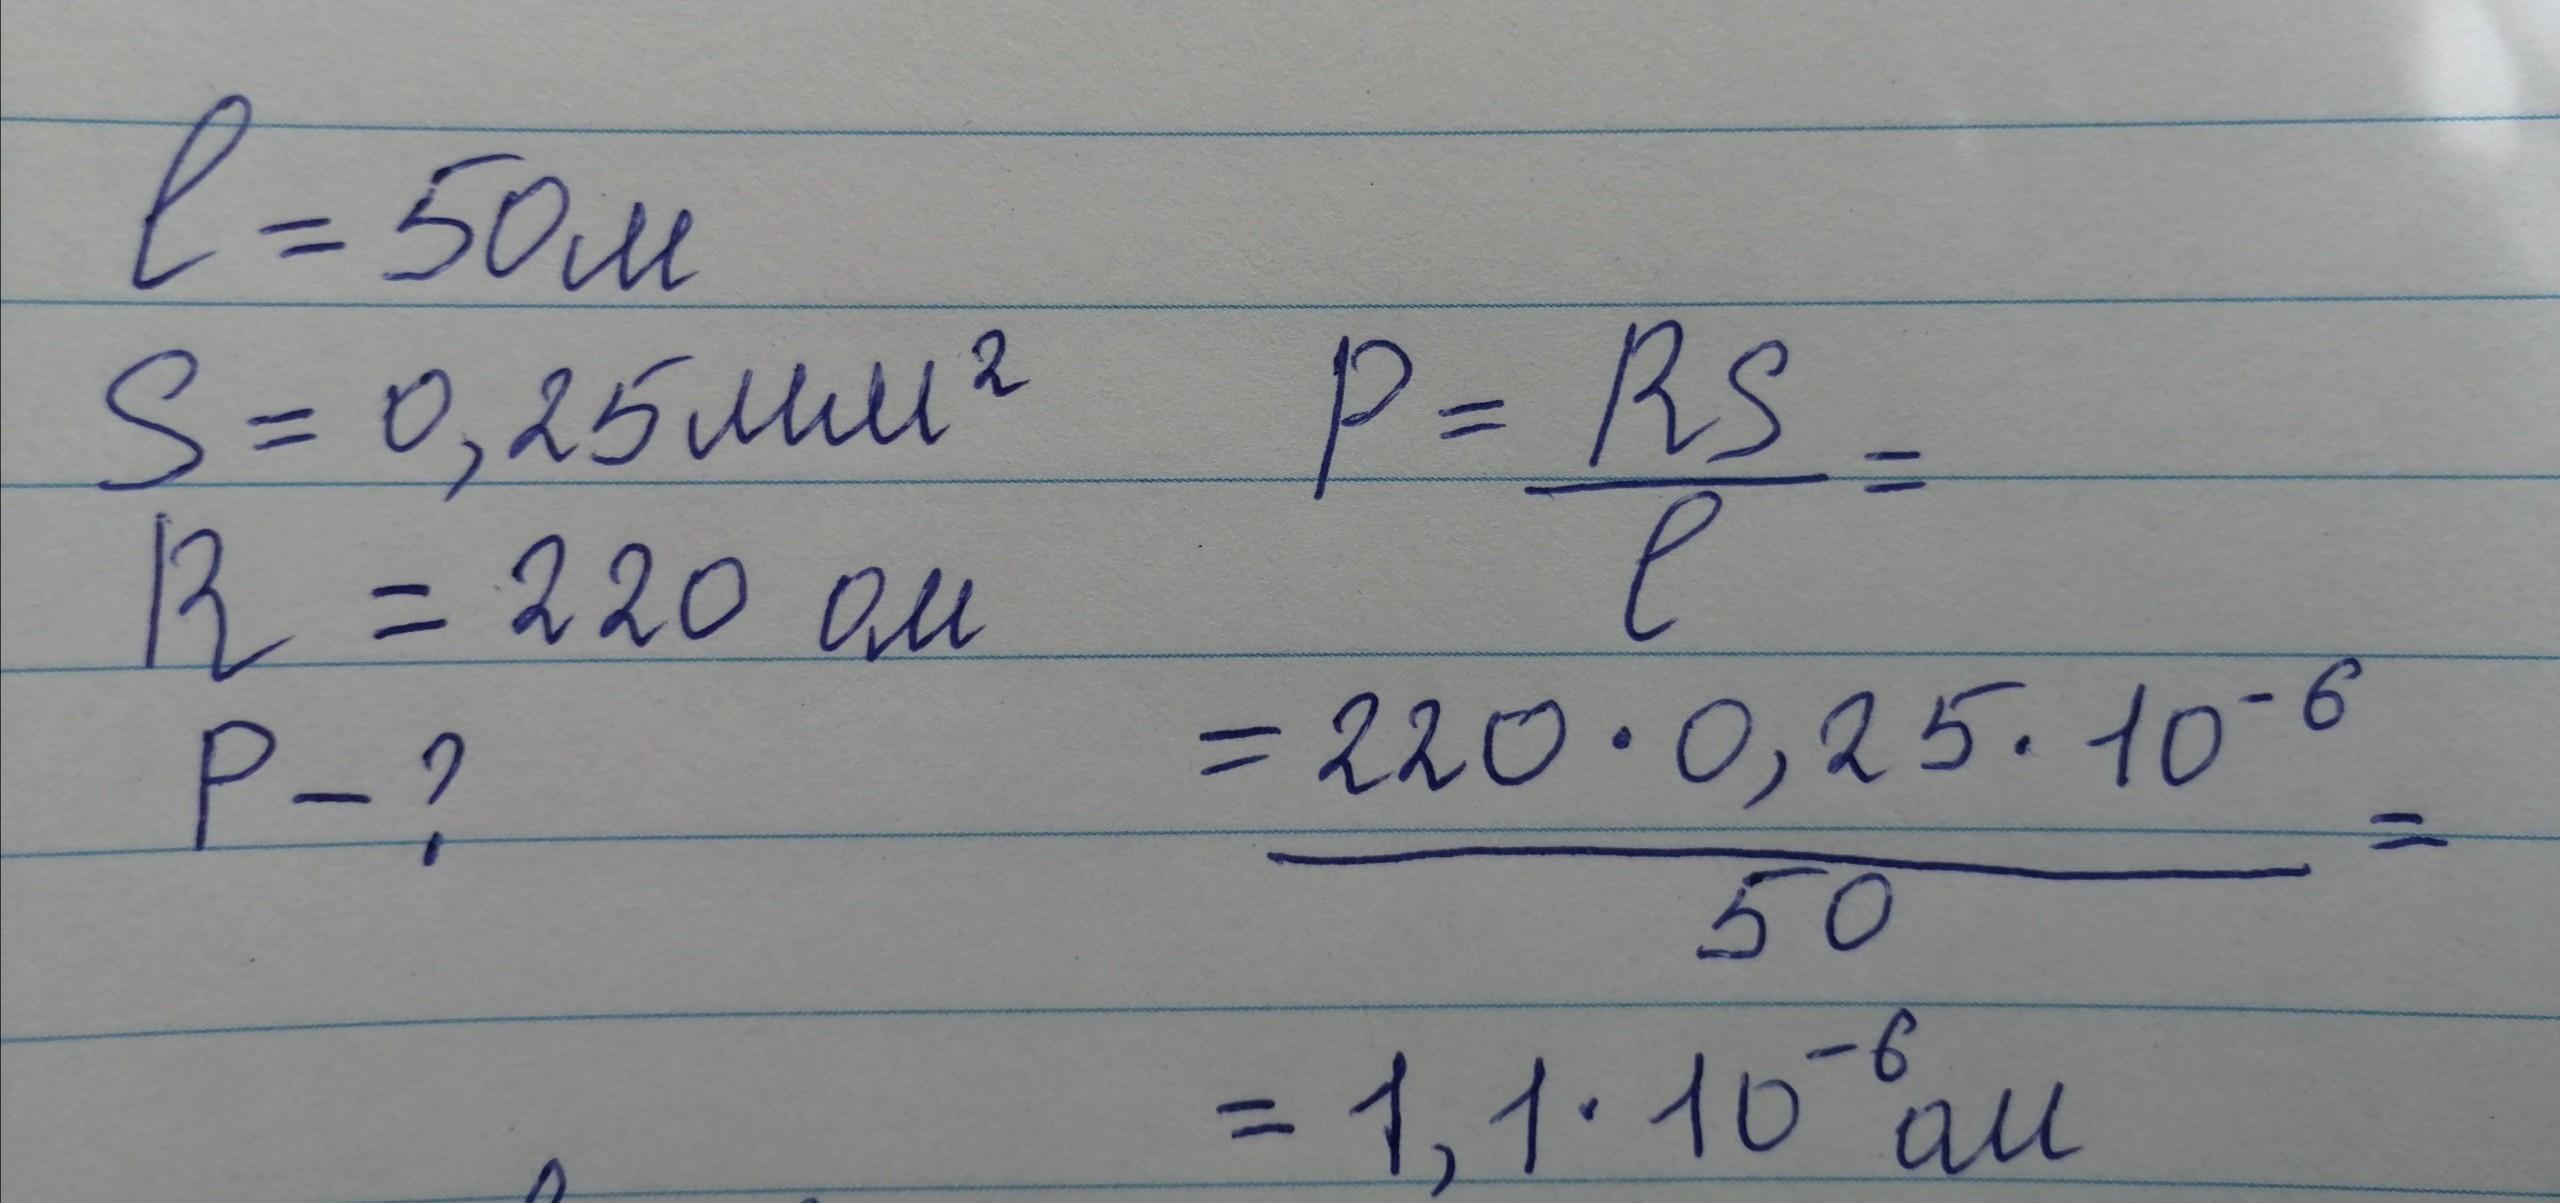 l = 50м
S = 0,25мм²
R = 220 ом
P – ?
P = RS/l =
= 220 · 0,25 · 10⁻⁶ / 50 =
= 1,1 · 10⁻⁶ ом